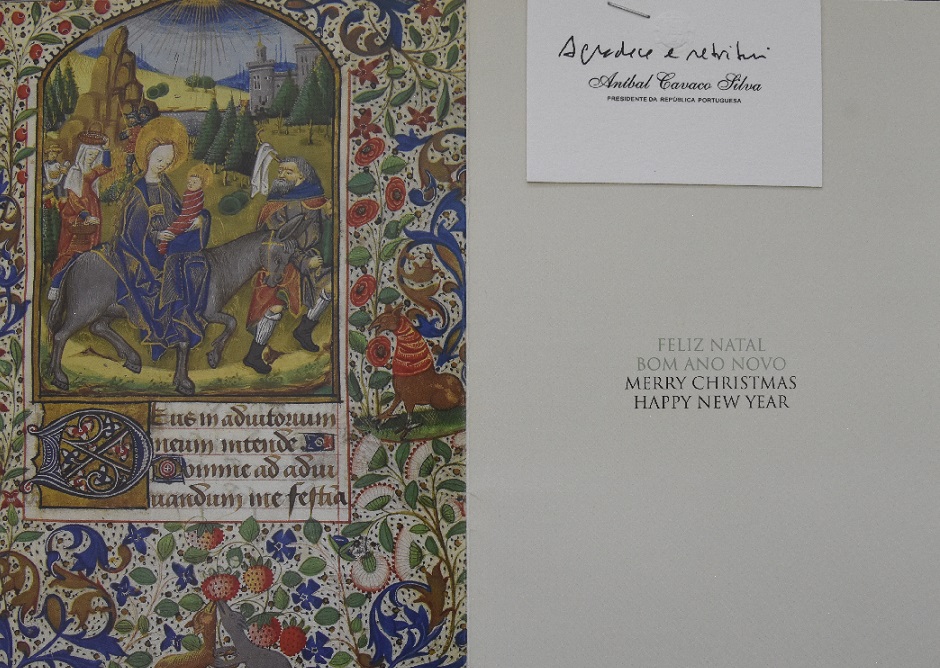 Deus in adiutorium
meum intende
Domine ad adiu
uandum me festina
Agradece e retribui
Aníbal Cavaco Silva
PRESIDENTE DA REPÚBLICA PORTUGUESA
FELIZ NATAL
BOM ANO NOVO
MERRY CHRISTMAS
HAPPY NEW YEAR